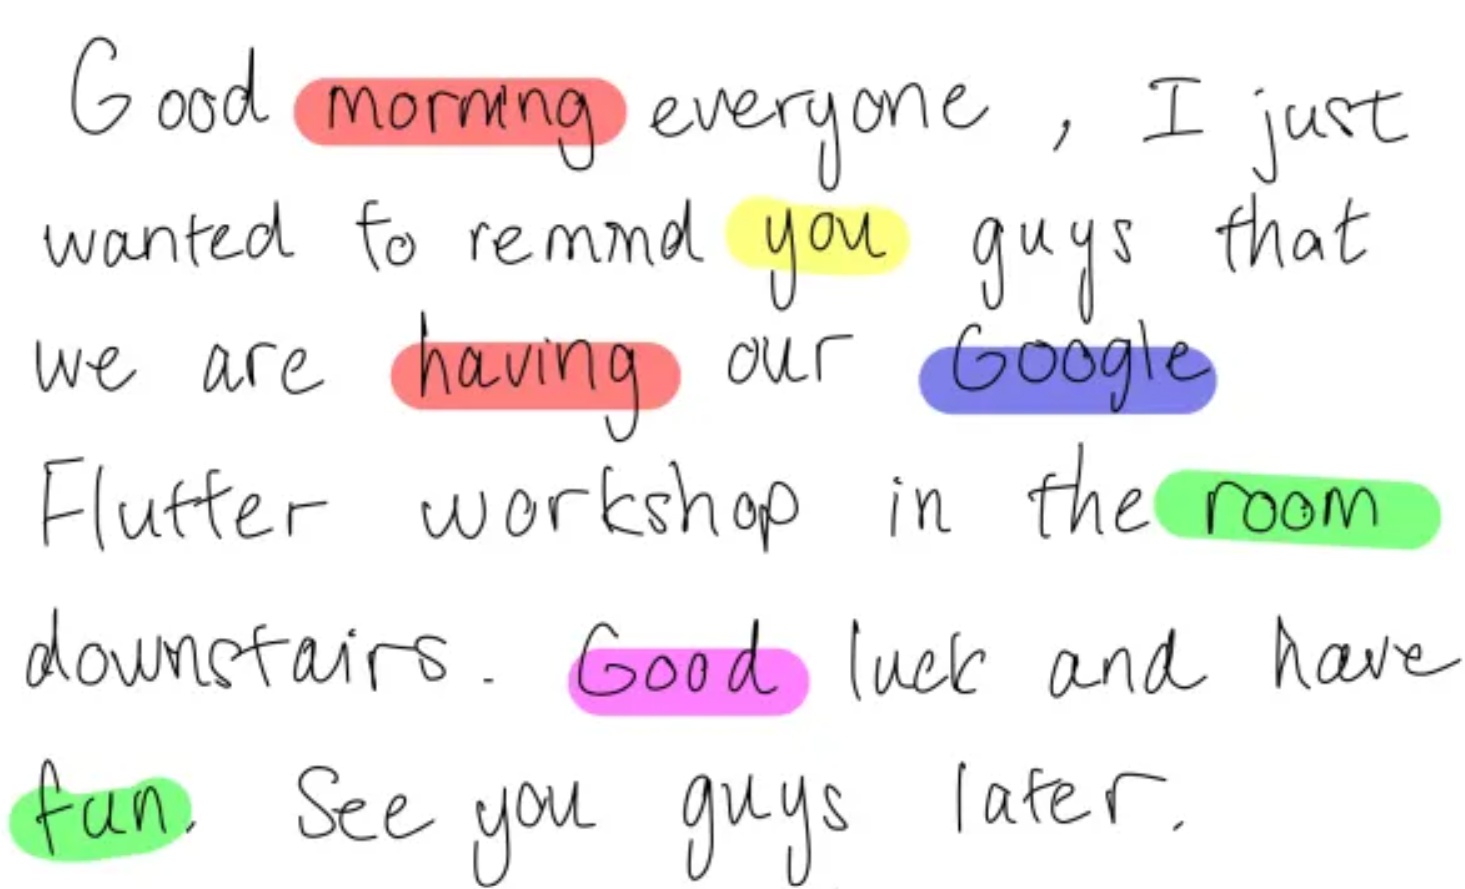 Good morning everyone, I just
wanted to remind you guys that
we are having our Google
Flutter workshop in the room
downstairs. Good luck and have
fun. See you guys later.